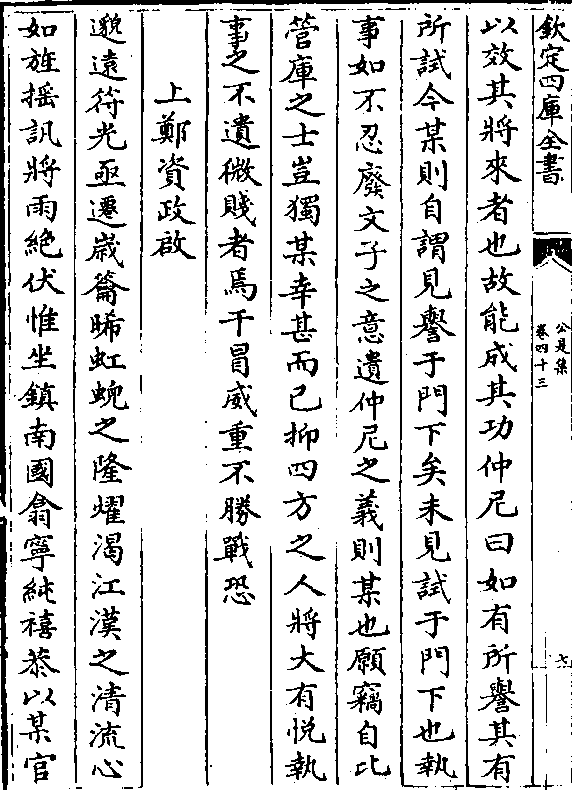 欽定四庫全書
公是集
卷四十三
七
以效其將來者也故能成其功仲尼曰如有所譽其有
所試今某則自謂見譽于門下矣未見試于門下也執
事如不忍廢文子之意遺仲尼之義則某也願竊自比
管庫之士豈獨某幸甚而已抑四方之人將大有悅執
事之不遺微賤者焉干冒威重不勝戰恐
上鄭資政啟
邈遠符光亟遷歲籥晞虹蜺之隆耀渴江漢之清流心
如旌揺訊將雨絶伏惟坐鎮南國翕寧純禧恭以某官